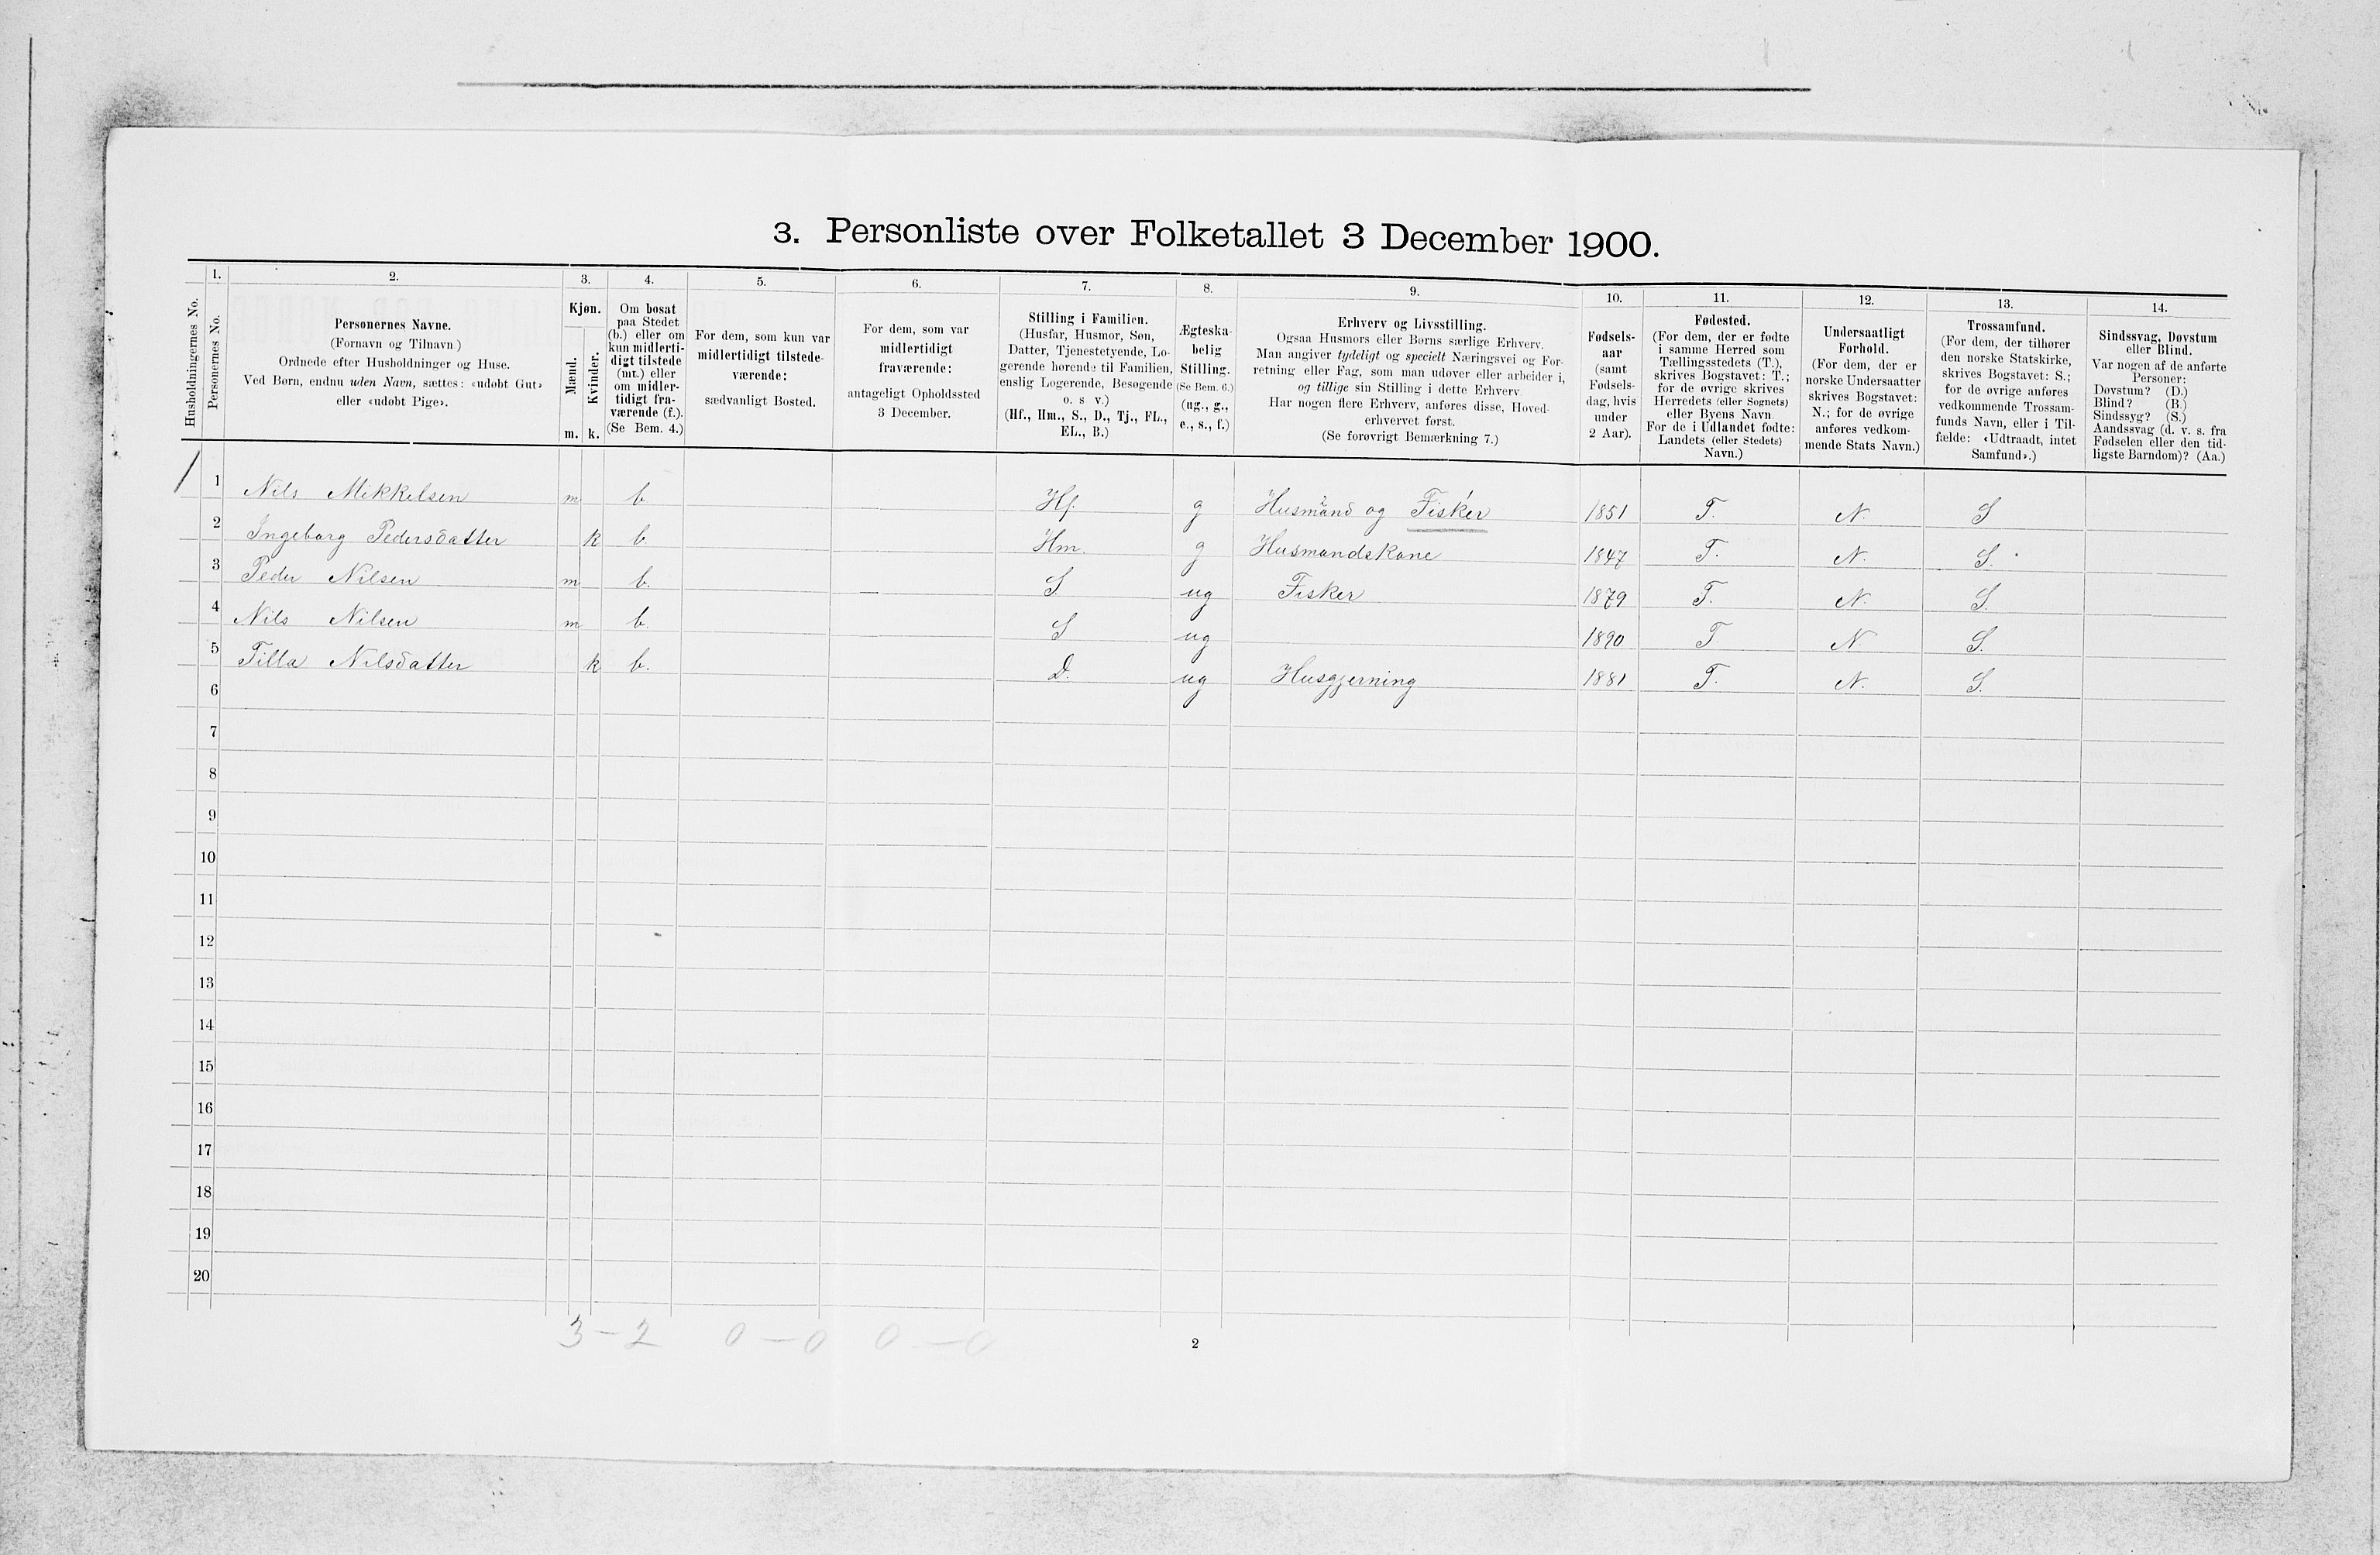 3. Personliste over Folketallet 3 December 1900.
Husholdningernes No.
1.
Personernes No.
2.
Personernes Navne.
(Fornavn og Tilnavn)
Ordnede efter Husholdninger og Huse.
Ved Børn, endnu uden Navn, sættes: «udøbt Gut»
eller «udøbt Pige».
3.
Kjøn.
Mænd.
m.
Kvinder.
k.
4.
Om bosat
paa Stedet
(b.) eller om
kun midlerti-
digt tilstede
(mt.) eller
om midler-
tidigt fra-
værende (f.).
(Se Bem. 4.)
5.
For dem, som kun var
midlertidigt tilstede-
værende:
sædvanligt Bosted.
6.
For dem, som var
midlertidigt
fraværende:
antageligt Opholdssted
3 December.
7.
Stilling i Familien.
(Husfar, Husmor, Søn,
Datter, Tjenestetyende, Lo-
gerende hørende til Familien,
enslig Logerende, Besøgende
o. s v.)
(Hf., Hm., S., D., Tj., FL.,
EL., B.)
8.
Ægteska-
belig
Stilling.
(Se Bem. 6.)
(ug., g.,
e., s., f.)
9.
Erhverv og Livsstilling.
Ogsaa Husmors eller Børns særlige Erhverv.
Man angiver tydeligt og specielt Næringsvei og For-
retning eller Fag, som man udøver eller arbeider i,
og tillige sin Stilling i dette Erhverv.
Har nogen flere Erhverv, anføres disse, Hoved-
erhvervet først.
(Se forøvrigt Bemærkning 7.)
10.
Fødsels-
aar
(samt
Fødsels-
dag, hvis
under
2 Aar).
11.
Fødested.
(For dem, der er fødte
i samme Herred som
Tællingsstedets (T.),
skrives Bogstavet: T.;
for de øvrige skrives
Herredets (eller Sognets)
eller Byens Navn.
For de i Udlandet fødte:
Landets (eller Stedets)
Navn.)
12.
Undersaatligt
Forhold.
(For dem, der er
norske Undersaatter
skrives Bogstavet:
N.; for de øvrige
anføres vedkom-
mende Stats Navn.)
13.
Trossamfund.
(For dem, der tilhører
den norske Statskirke,
skrives Bogstavet: S.;
for de øvrige anføres
vedkommende Trossam-
funds Navn, eller i Til-
fælde: «Udtraadt, intet
Samfund».)
14.
Sindssvag, Døvstum
eller Blind.
Var nogen af de anførte
Personer:
Døvstum? (D.)
Blind? (B.)
Sindssyg? (S.)
Aandssvag (d. v. s. fra
Fødselen eller den tid-
ligste Barndom)? (Aa.)
1 Nils Mikkelsen m b. Hf. g Husmand og Fisker 1851 T. N. S
2 Ingeborg Pedersdatter k b. Hm. g Husmandskone 1847 T. N. S.
3 Peder Nilsen m b. — S ug Fisker 1879 T. N. S.
4 Nils Nilsen m b. S ug 1890 T N S.
5 Tilla Nilsdatter k b. D. ug Husgjerning 1881 T. N. S.
6
7
8
9
10
11
12
13
14
15
16
17
18
19
20
3 - 2 0 - 0 0 - 0
2